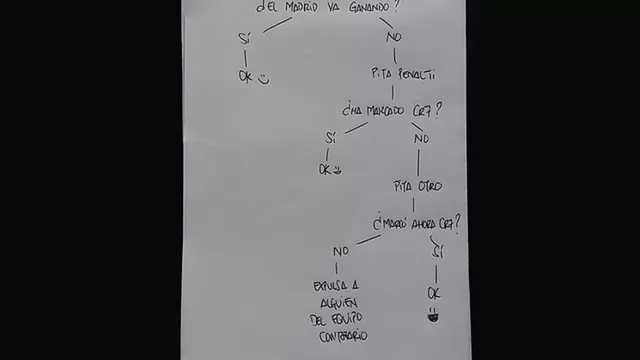 ¿EL MADRID VA GANANDO?
SÍ
NO
OK
PITA PENALTI
¿HA MARCADO CR7?
SÍ
NO
OK
PITA OTRO
¿MARCÓ AHORA CR7?
NO
SÍ
EXPULSA A
ALGUIEN
DEL EQUIPO
CONTRARIO
OK